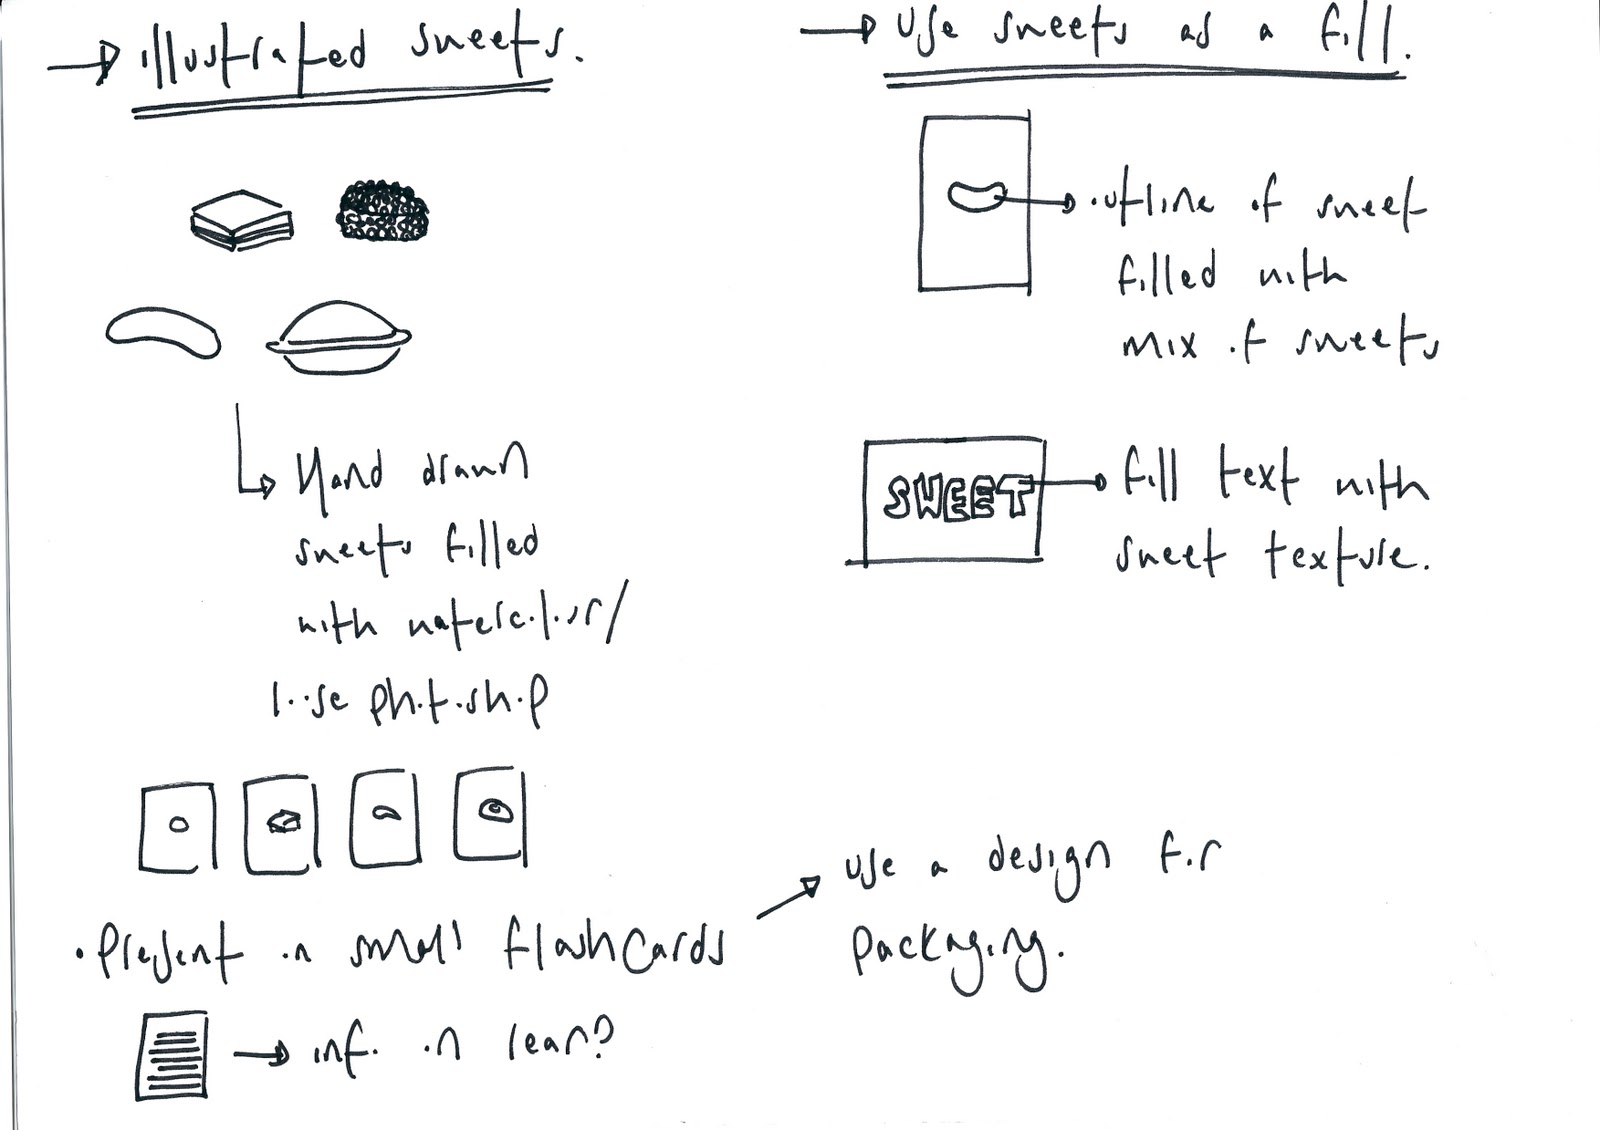 illustrated sweets.
Hand drawn
sweets filled
with watercolour/
loose photoshop
• Present on small flashcards
info on rear?
Use sweets as a fill.
outline of sweet
filled with
mix of sweets
SWEET
fill text with
sweet texture.
use a design for
packaging.